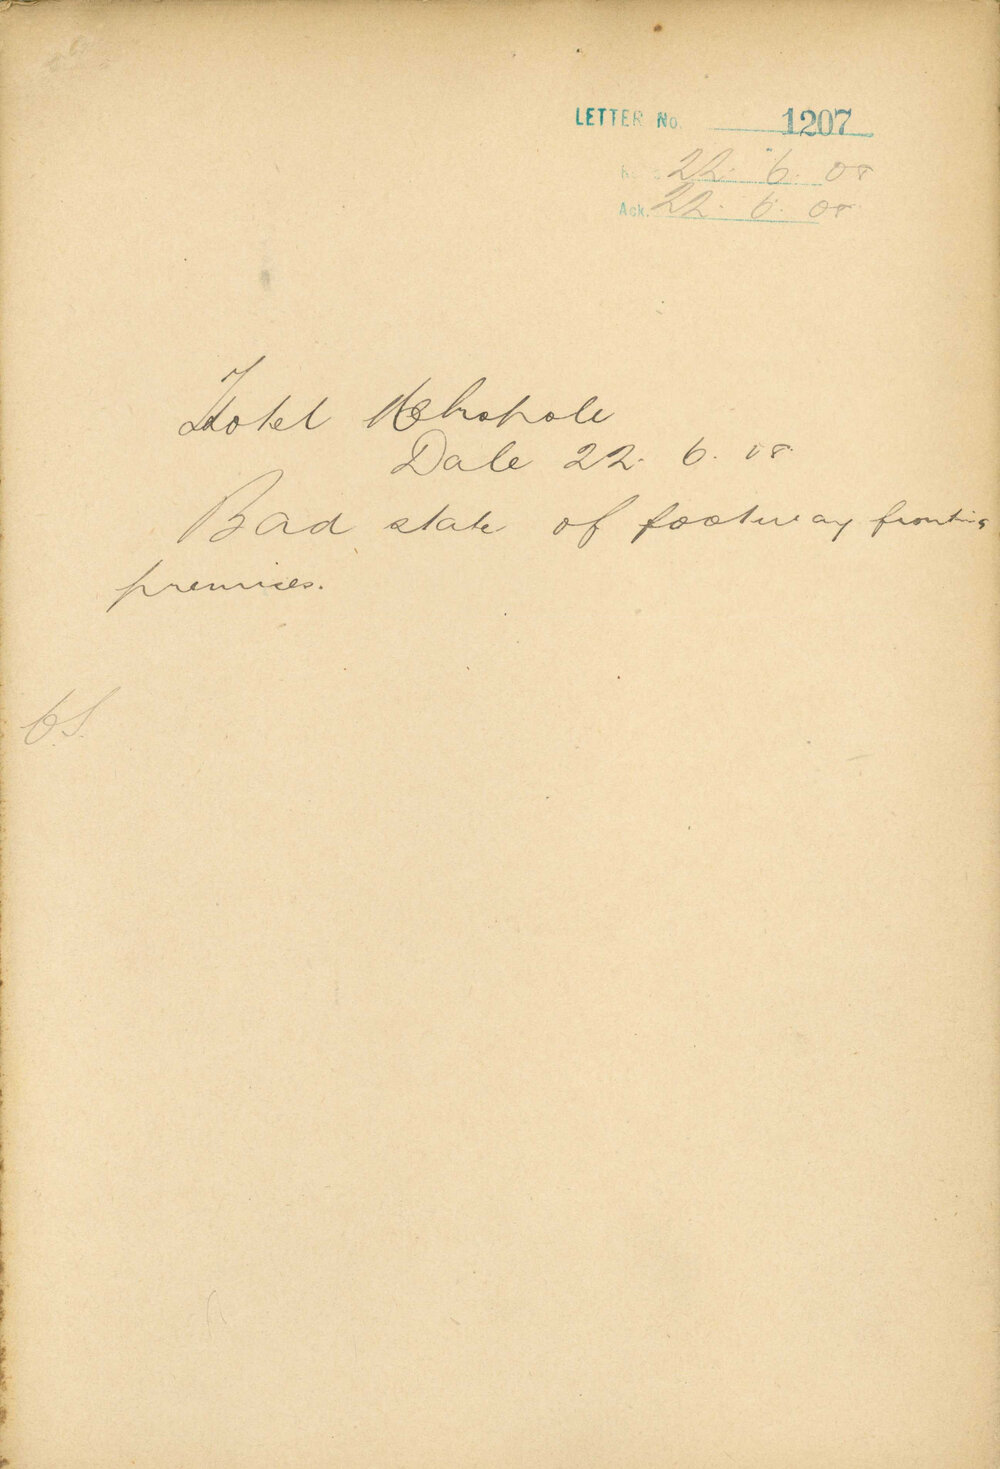 LETTER No. 1207
22. 6. 08
Ack. 22. 6. 08
Hotel Metropole
Date 22. 6. 08
Bad state of footway fronting
premises.